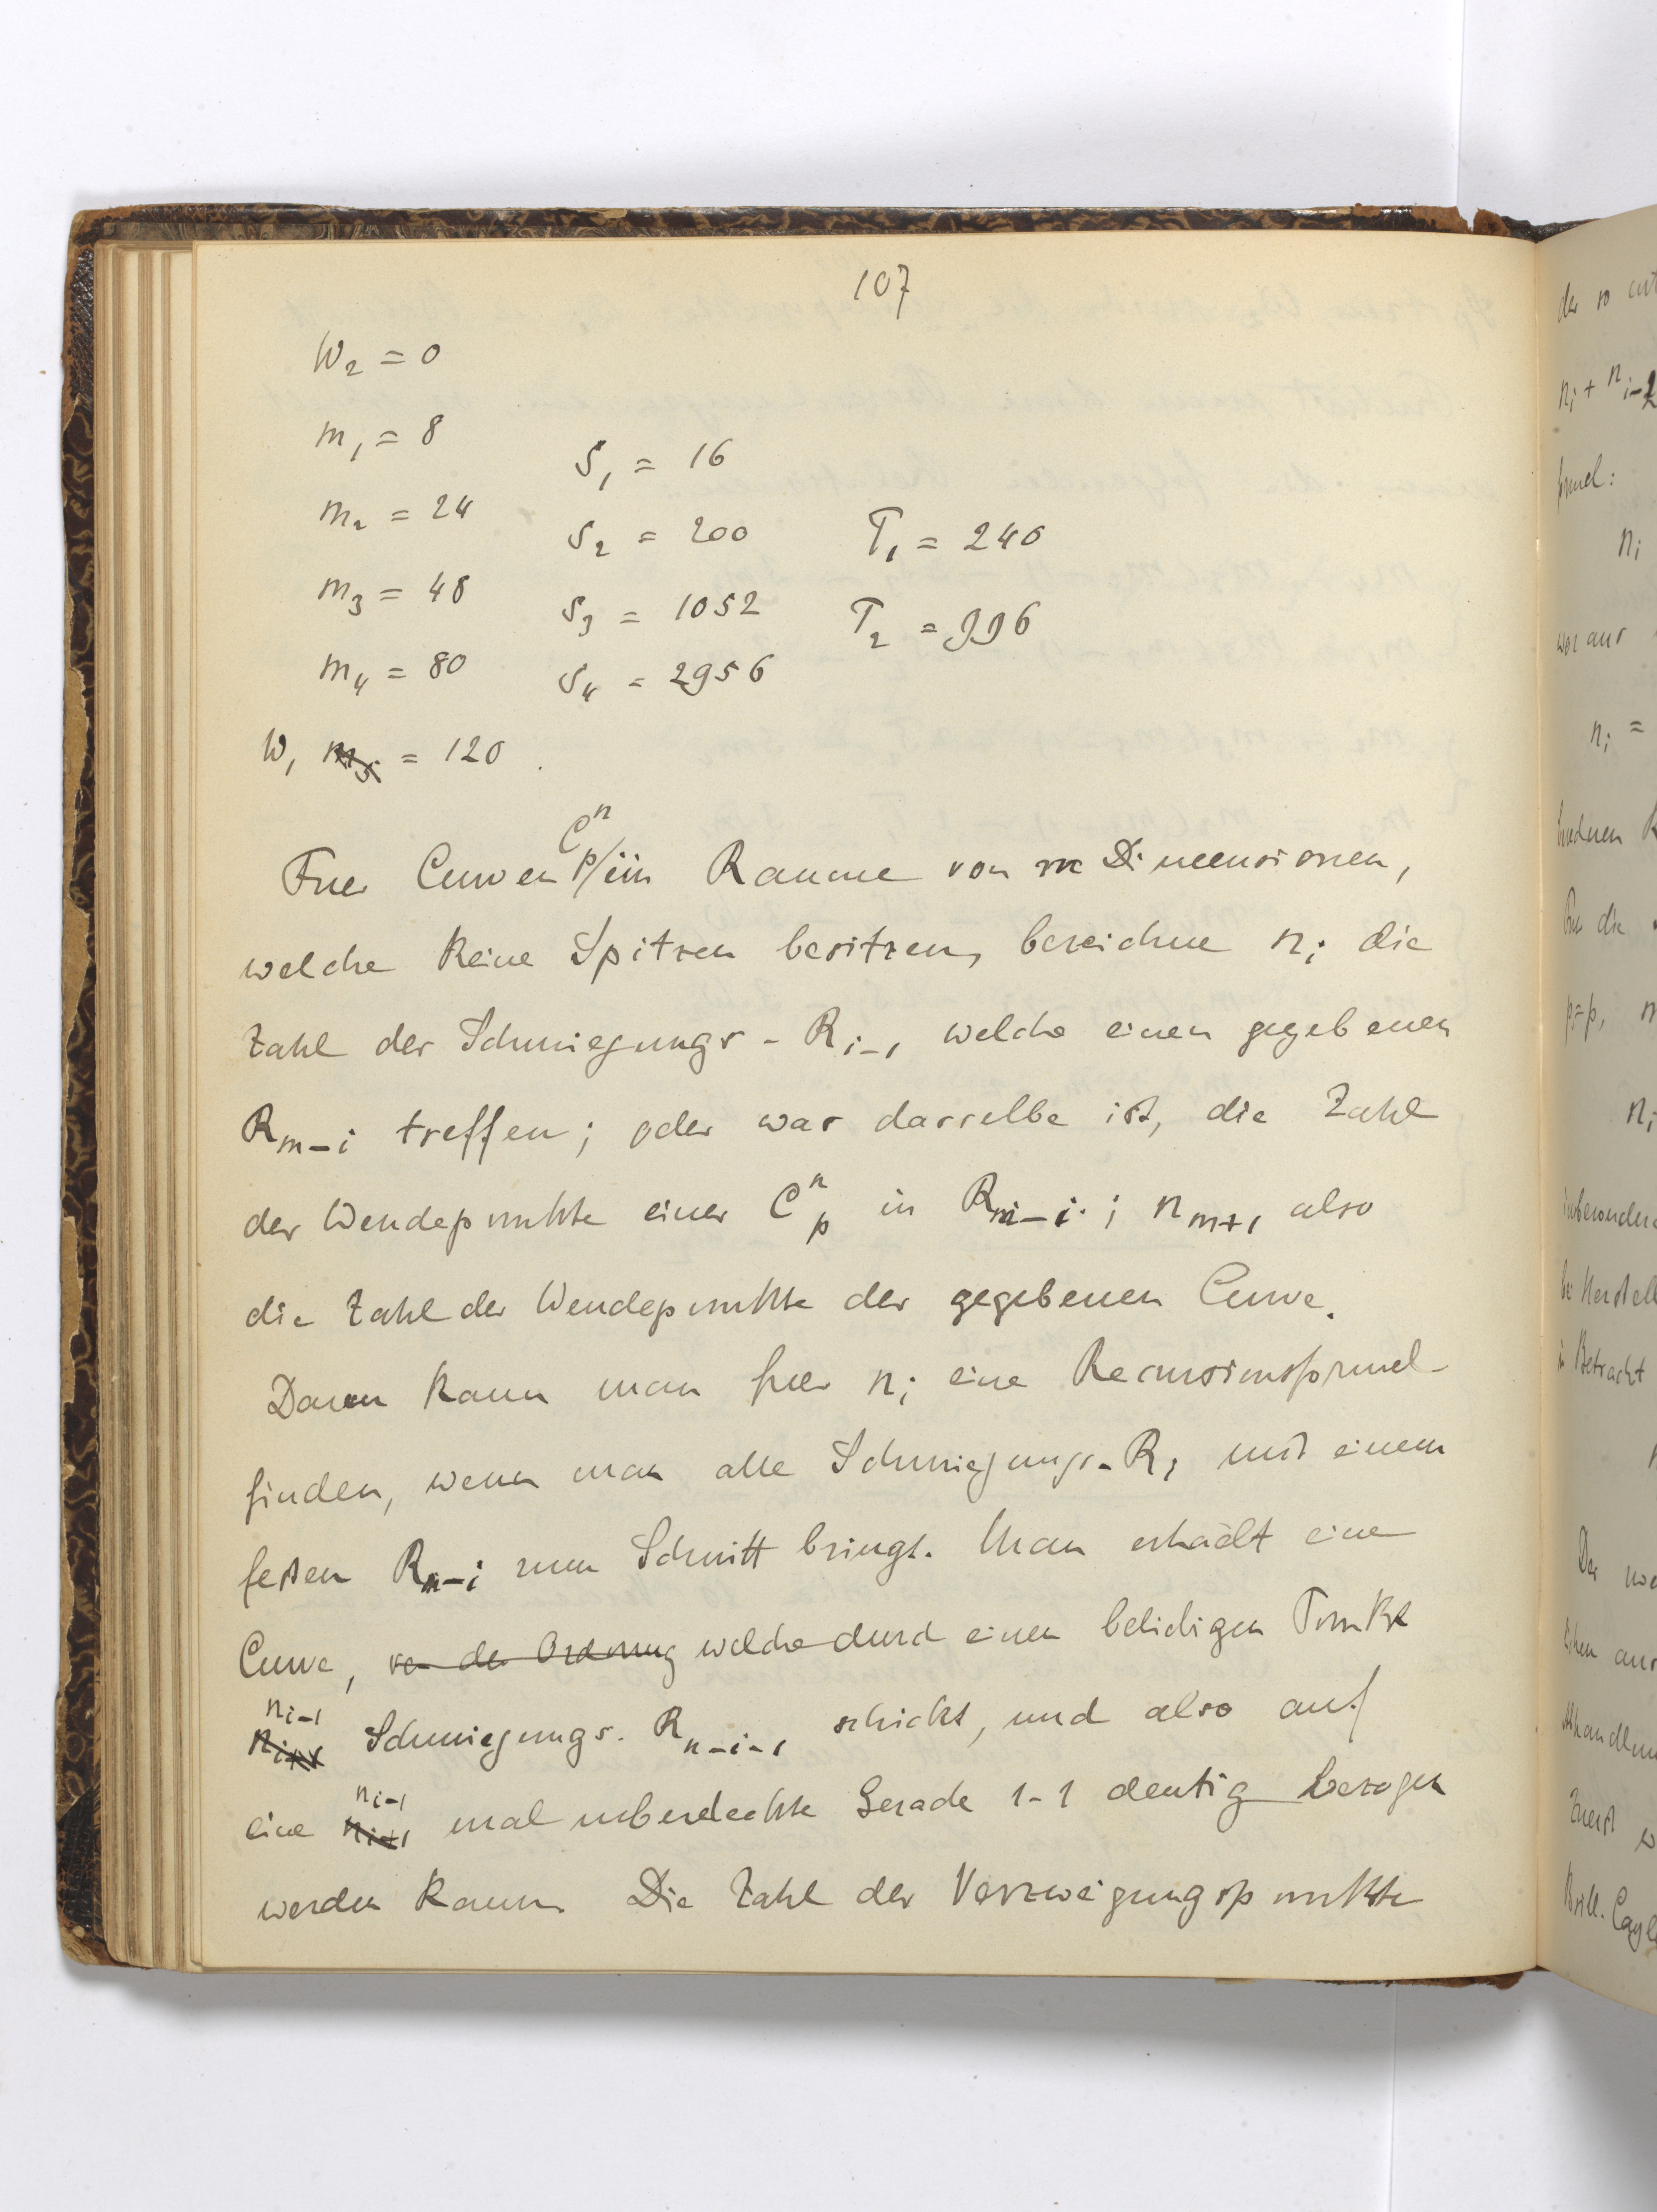 107
W₂ = 0
m₁ = 8
S₁ = 16
m₂ = 24
S₂ = 200
T₁ = 240
m₃ = 48
S₃ = 1052
T₂ = 996
m₄ = 80
S₄ = 2956
W₁ m₅ = 120.
Fuer Curven Cⁿₚ im Raume von m Dimensionen,
welche keine Spitzen besitzen, bezeichne nᵢ die
Zahl der Schmiegungs-Rᵢ₋₁ welche einen gegebenen
Rₘ₋ᵢ treffen; oder was dasselbe ist, die Zahl
der Wendepunkte einer Cⁿₚ in Rₘ₋ᵢ; nₘ₊₁ also
die Zahl der Wendepunkte der gegebenen Curve.
Dann kann man fuer nᵢ eine Recursionsformel
finden, wenn man alle Schmiegungs-Rᵢ mit einem
festen Rₙ₋ᵢ zum Schnitt bringt. Man erhaelt eine
Curve, von der Ordnung welche durch einen beliebigen Punkt
nᵢ₋₁
nᵢ₊₁ Schmiegungs. Rₙ₋ᵢ₋₁ schickt, und also auf
nᵢ₋₁
eine nᵢ₊₁ mal ueberdeckte Gerade 1-1 deutig bezogen
werden kann. Die Zahl der Verzweigungspunkte
der so
nᵢ + nᵢ₋₂
formel:
nᵢ
woraus
nᵢ =
die
p=p,
nᵢ
insbesondere
in Betracht
Der
Zuerst
Brill.